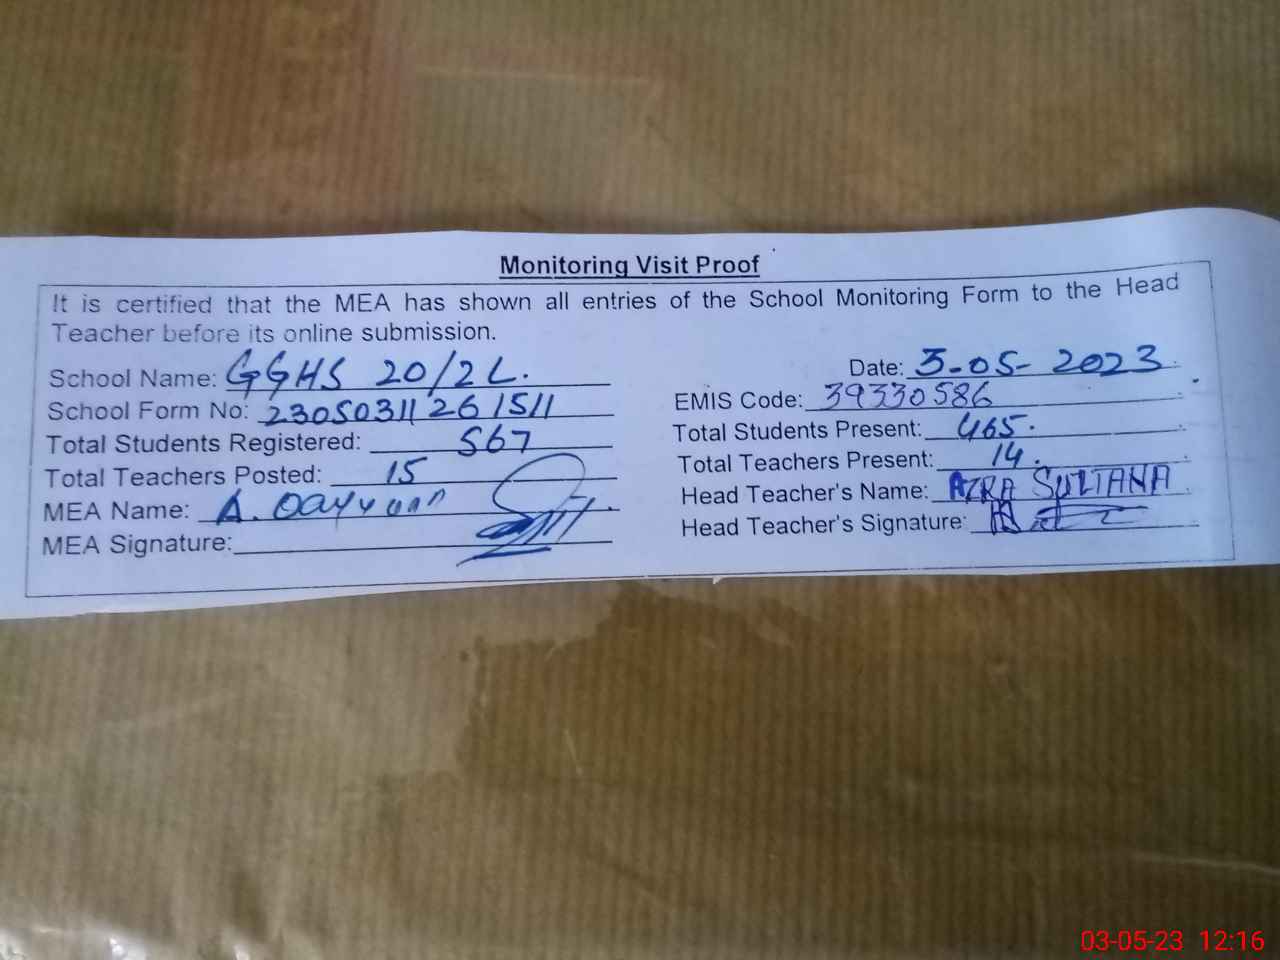 Monitoring Visit Proof
It is certified that the MEA has shown all entries of the School Monitoring Form to the Head
Teacher before its online submission.
School Name: GGHS 20/2L.
Date: 3-05-2023
School Form No: 23050311261511
EMIS Code: 39330586
Total Students Registered: 567
Total Students Present: 465.
Total Teachers Posted: 15
Total Teachers Present: 14.
MEA Name: A. Qayyum
Head Teacher's Name: AZRA SULTANA
MEA Signature:
Head Teacher's Signature:
03-05-23 12:16